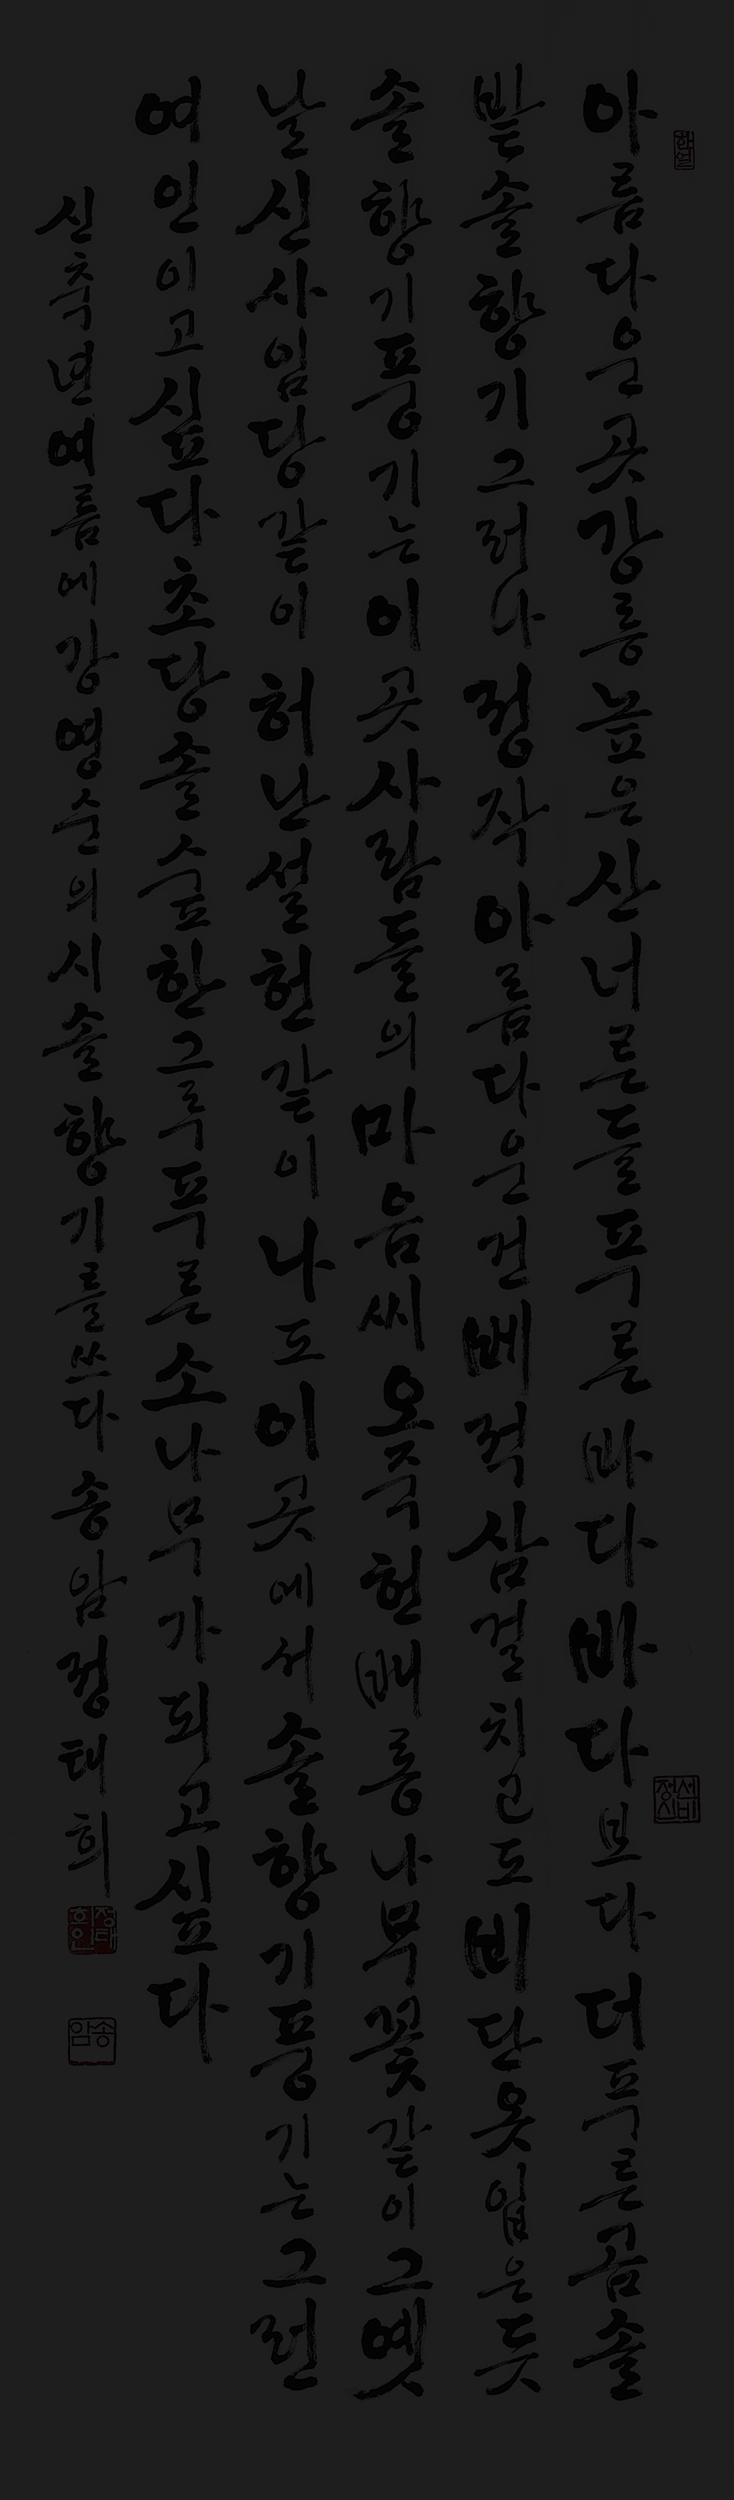 아름다운 곳 강릉 높은 산 너른 들 푸른 바다 바다보다 더 푸른 곰솔
밭 솔향기 그러나 정작 아름다운 건 비단옷 입은 듯
솔향기 풍기는 이곳 사람들의 마음씨 오죽헌 배롱나무꽃 같이 그 옛
날 신사임당 같이 허난설헌 같이 나도 이곳에서 솔향기 풍기는 그런
여인이고 싶다 초당 솔숲 한 그루 푸른 소나무가 되고 싶다
신축년 여름에 시 솔향기를 쓰다 송암 정태희
송암